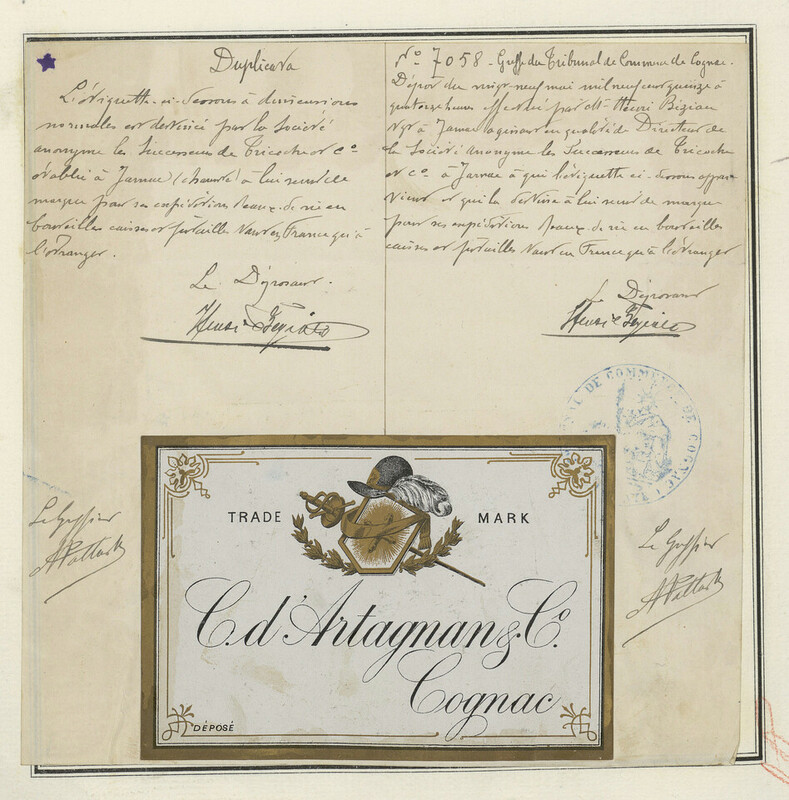 Duplicata
L'étiquette ci-dessous à dimensions
normales est destinée par la Société
anonyme les Successeurs de Tricoche et Cº
établie à Jarnac (charente) à lui servir de
marque pour ses expéditions d'eaux-de-vie en
bouteilles caisses et futailles tant en France qu'à
l'étranger.
Le Déposant.
Henri
Nº 7058 - Greffe du Tribunal de Commerce de Cognac.
Dépôt du vingt-neuf mai mil neuf cent quinze à
quatorze heures effectué par Mr Henri
Ngt à Jarnac agissant en qualité de Directeur de
la Société Anonyme les Successeurs de Tricoche
et Cº à Jarnac à qui l'étiquette ci-dessous appar
tient et qui la destine à lui servir de marque
pour ses expéditions d'eaux de vie en bouteilles
caisses et futailles tant en France qu'à l'étranger
Le Déposant
Henri
TRIBUNAL DE COMMERCE DE COGNAC
Le Greffier
Le Greffier
TRADE MARK
C. d'Artagnan & Cº
Cognac
DÉPOSÉ